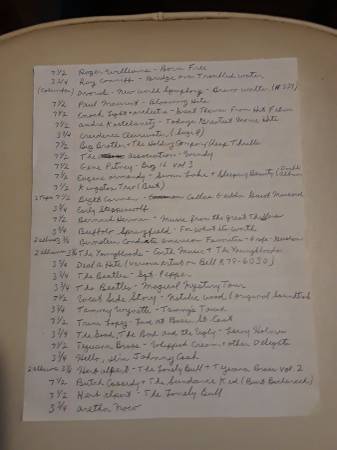 7 1/2 Roger Williams - Born Free
3 3/4 Ray Conniff - Bridge over Troubled water
(Columbia) Dvorak - New world Symphony - Bruno Walter (#
7 1/2 Paul Mauriat - Blooming Hits
7 1/2 Enoch Light + orchestra - Great Themes From Hit Films
7 1/2 Andre Kostelanetz - Todays Greatest Movie Hits
3 3/4 Creedence Clearwater
7 1/2 Big Brother + The Holding Company Cheap Thrills
7 1/2 The association - 
7 1/2 Gene Pitney - Big 16 Vol 3
7 1/2 Eugene Ormandy - Swan Lake + Sleeping Beauty (Double Album
7 1/2 Kingston Trio (Best)
2 Tapes 7 1/2 Bizet Carmen - Callas Gedda
3 3/4 Early Steppenwolf
7 1/2 Bernard Herrman - Music from the great Thrillers
3 3/4 Buffalo Springfield - For what its worth
2 albums 3 3/4 American Favorites -
2 albums 3 3/4 The Youngbloods - Earth Music + The Youngbloods
3 3/4 Deal a Hits (various artists on Bell K79-6030)
3 3/4 The Beatles - Sgt. Pepper
3 3/4 The Beatles - Magical Mystery Tour
7 1/2 West Side Story - Natalie Wood (original soundtrack
3 3/4 Tammy Wynette - Tammy's Touch
7 1/2 Trini Lopez - Live at Basin St. East
3 3/4 The Good, The Bad and the Ugly - Leroy Holmes
7 1/2 Tijuana Brass - Whipped Cream + other Delights
3 3/4 Hello, I'm Johnny Cash
2 albums 3 3/4 Herb Alpert - The Lonely Bull + Tijuana Brass Vol. 2
7 1/2 Butch Cassidy + The Sundance Kid (Burt Bacharach)
7 1/2 Herb Alpert - The Lonely Bull
3 3/4 Aretha Now